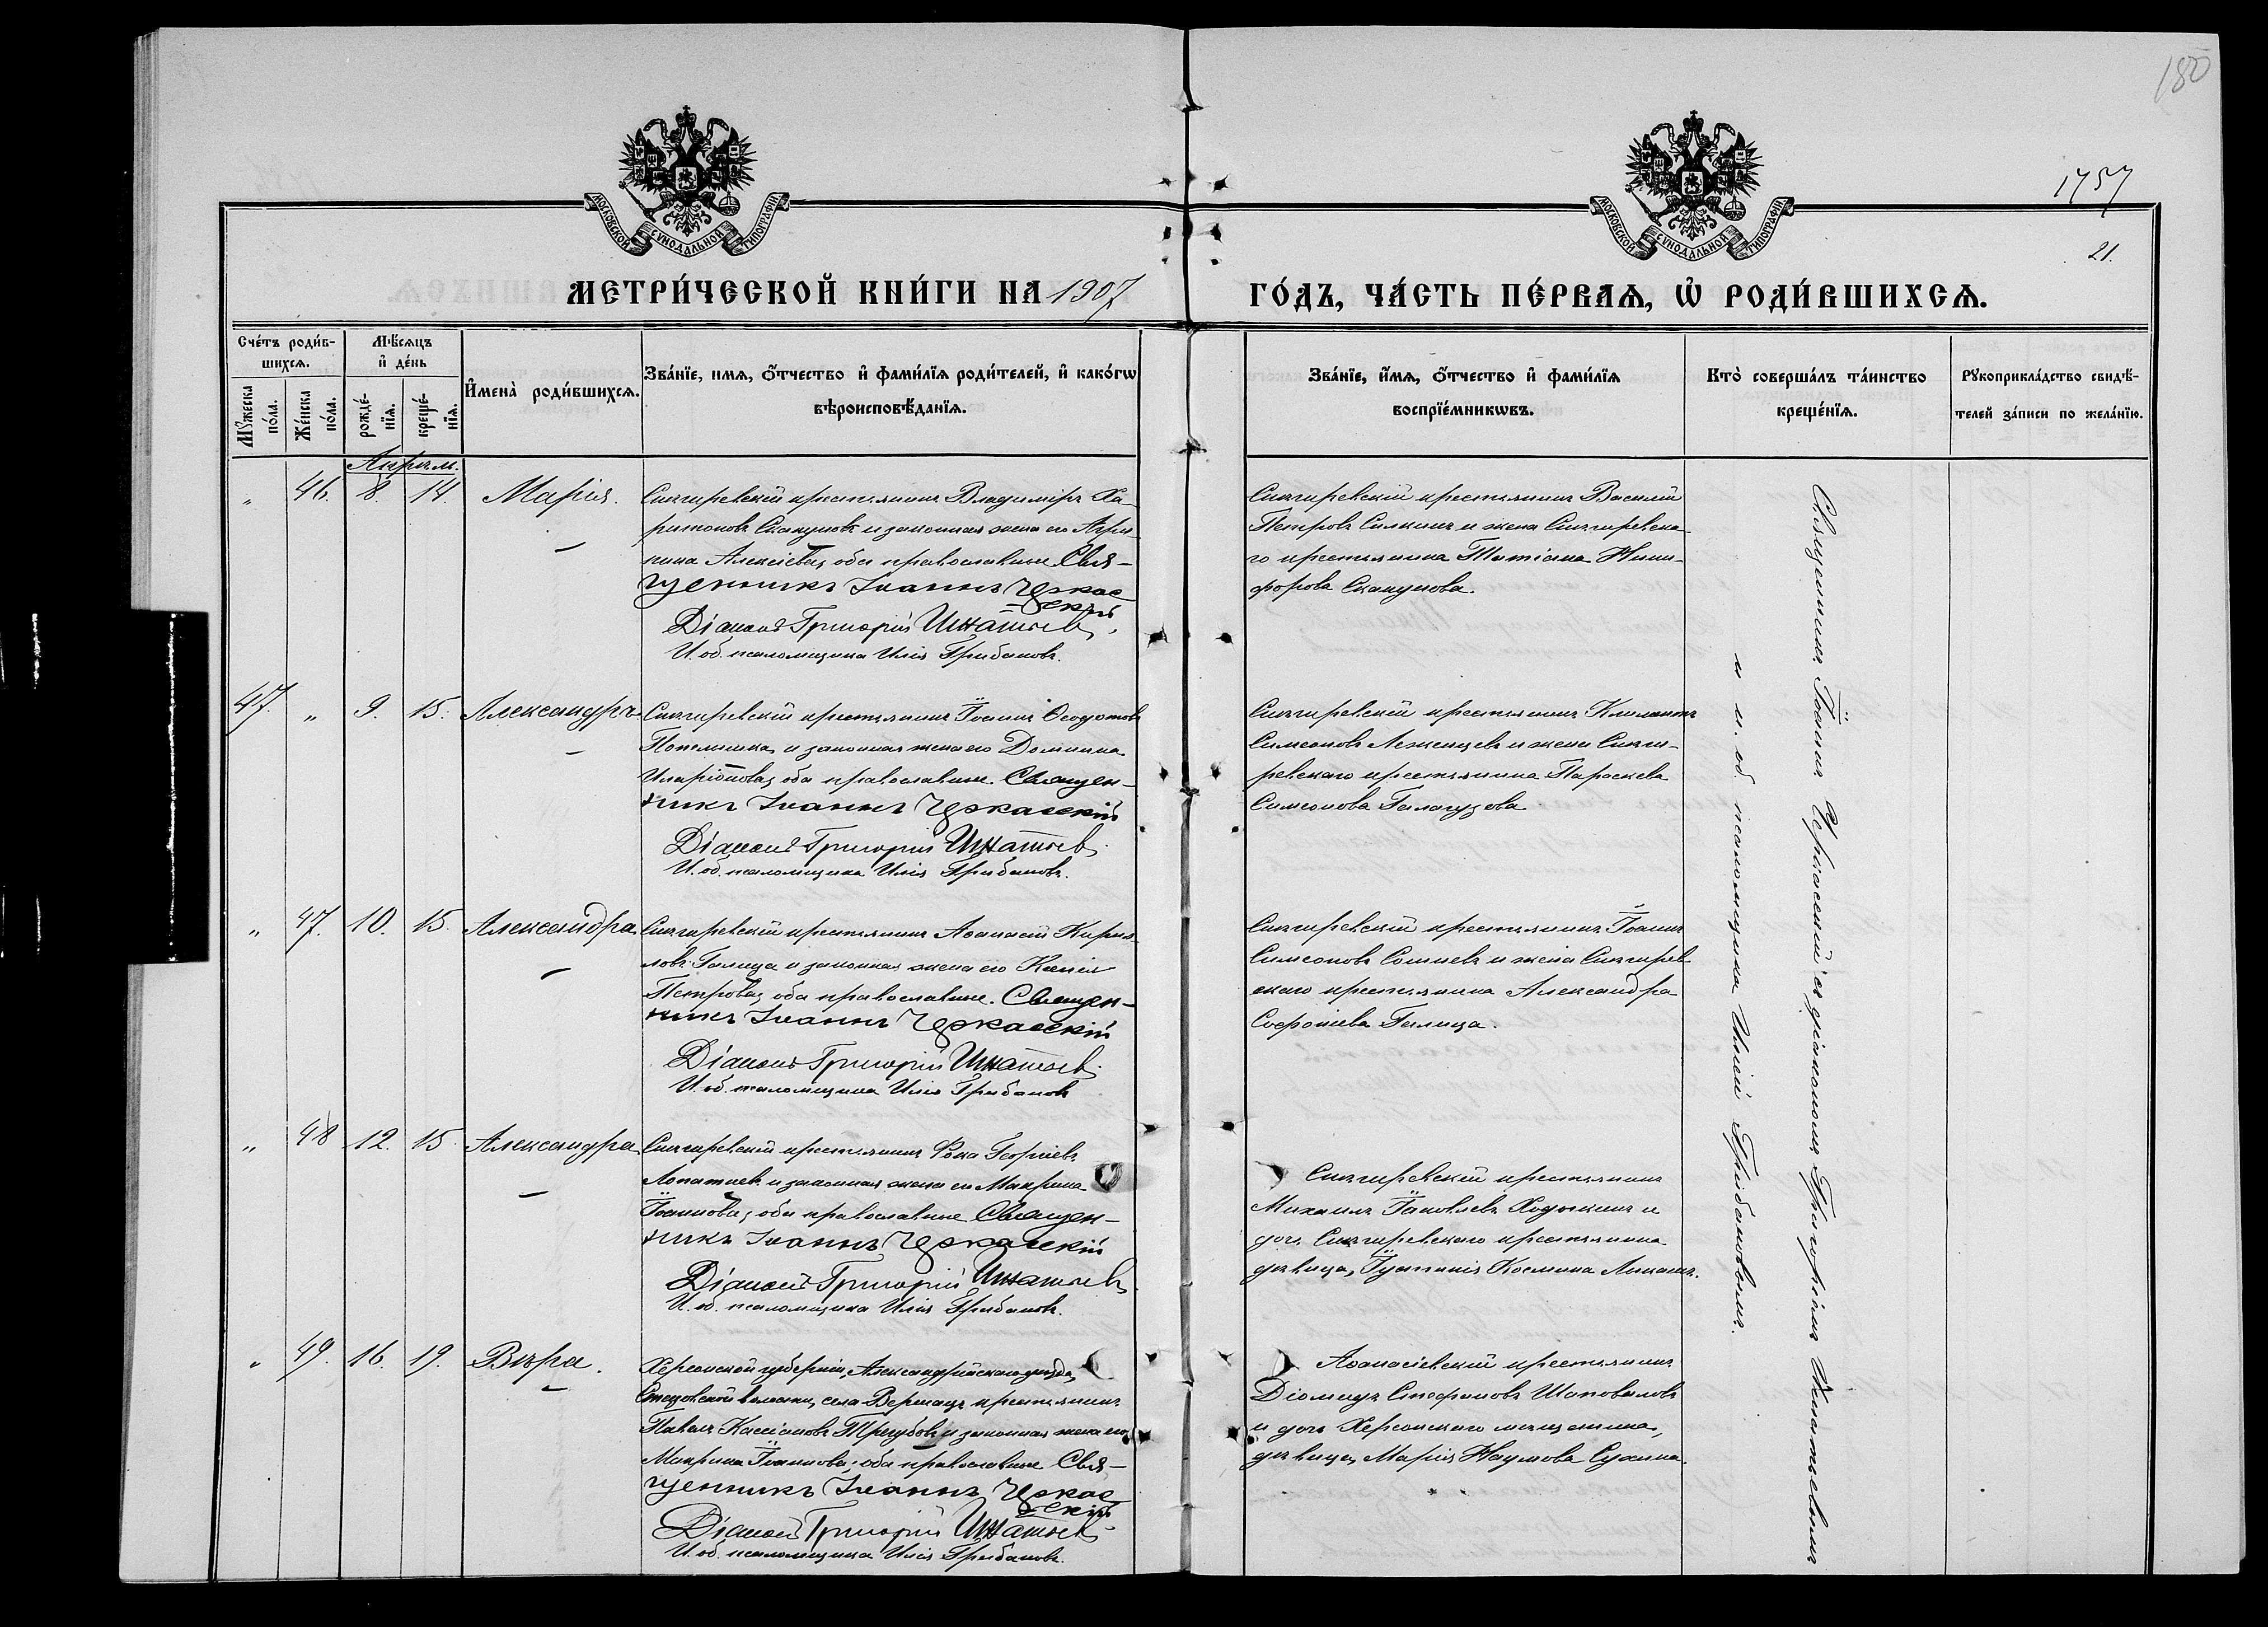 180
1757
21.
МОСКОВСКОЙ СѴНОДАЛЬНОЙ ТИПОГРАФІИ
МОСКОВСКОЙ СѴНОДАЛЬНОЙ ТИПОГРАФІИ
МЕТРИ́ЧЕСКОЙ КНИ́ГИ НА 1907
ГО́ДЪ, ЧА́СТЬ ПЕ́РВАѦ, Ѡ҆ РОДИ́ВШИХСѦ.
Сче́тъ роди́в-
шихсѧ.
Мꙋ́жеска
по́ла.
Же́нска
по́ла.
Мѣ́сѧцъ
и҆ де́нь
рожде́-
нїѧ.
креще́-
нїѧ.
И҆мена̀ роди́вшихсѧ.
Зва́нїе, имѧ, ѻ҆́тчество и҆ фами́лїѧ роди́телей, и҆ како́гѡ
вѣроисповѣ́данїѧ.
Зва́нїе, и҆́мѧ, ѻ҆́тчество и҆ фами́лїѧ
воспрїе́мникѡвъ.
Кто̀ соверша́лъ та́инство
креще́нїѧ.
Рꙋкоприкла́дство свидѣ́-
телей за́писи по жела́нїю.
Апрѣль.
" 46. 8. 14. Марія.
Снигиревскій крестьянинъ Владиміръ Ха-
ритоновъ Скакуновъ и законная жена его Агри-
пина Алексіева, оба православные Свя-
щенникъ Іоаннъ Черкас-
скій
Діаконъ Григорій Игнатьевъ.
И. об. псаломщика Илія Грибановъ.
Снигиревскій крестьянинъ Василій
Петровъ Силкинъ и жена Снигиревска-
го крестьянина Татіана Ники-
форова Скакунова.
47. " 9. 15. Александръ.
Снигиревскій крестьянинъ Іоаннъ Ѳеодотовъ
и законная жена его Домника
Иларіонова, оба православные. Священ-
никъ Іоаннъ Черкасскій
Діаконъ Григорій Игнатьевъ.
И. об. псаломщика Илія Грибановъ.
Снигиревскій крестьянинъ Климентъ
Симеоновъ Леженцевъ и жена Сниги-
ревскаго крестьянина Параскева
Симеонова Галагузова.
" 47. 10. 15. Александра.
Снигиревскій крестьянинъ Аѳанасій Кирил-
ловъ Галица и законная жена его Ксенія
Петрова, оба православные. Священ-
никъ Іоаннъ Черкасскій
Діаконъ Григорій Игнатьевъ.
И. об. псаломщика Илія Грибановъ
Снигиревскій крестьянинъ Іоаннъ
Симеоновъ и жена Снигирев-
скаго крестьянина Александра
Софроніева Галица.
" 48 12. 15. Александра
Снигиревскій крестьянинъ Фока Георгіевъ
Лопатневъ и законная жена его Макрина
Іоаннова, оба православные Священ-
никъ Іоаннъ Черкасскій
Діаконъ Григорій Игнатьевъ
И. об. псаломщика Илія Грибановъ.
Снигиревскій крестьянинъ
Михаилъ Іаковлевъ Ходыкинъ и
дочь Снигиревскаго крестьянина
дѣвица, Іустинія Космина
" 49. 16. 19. Вѣра.
Херсонской губерніи, Александрійскаго уѣзда,
волости, села Вершацъ крестьянинъ
Павелъ Кассіановъ Трегубовъ и законная жена его
Макрина Іоаннова, оба православные Свя-
щенникъ Іоаннъ Черкас-
скій
Діаконъ Григорій Игнатьевъ
И. об. псаломщика Илія Грибановъ.
Аѳанасіевскій крестьянинъ
Діомидъ Стефановъ Шаповаловъ
и дочь Херсонскаго мѣщанина,
дѣвица, Марія Наумова Сухина.
Священникъ Іоаннъ Черкасскій съ діакономъ Григоріемъ Игнатьевымъ
и и. об. псаломщика Иліей Грибановымъ.